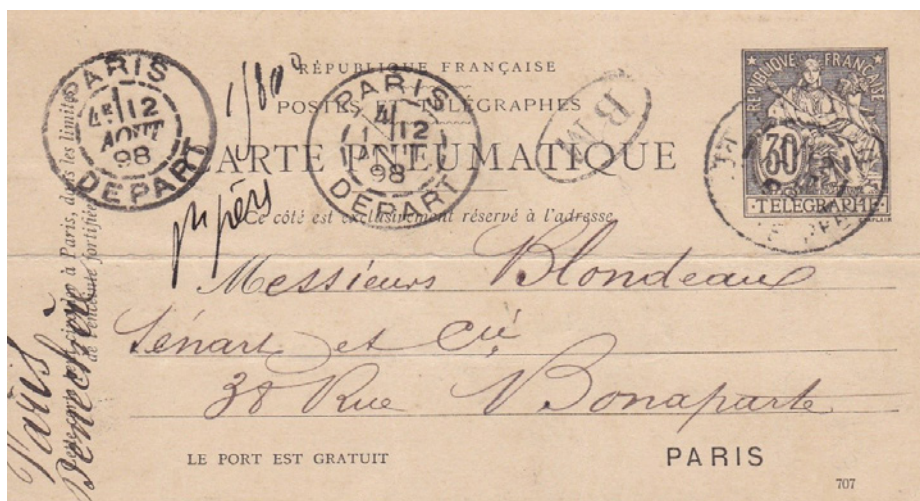 RÉPUBLIQUE FRANÇAISE
POSTES ET TÉLÉGRAPHES
CARTE PNEUMATIQUE
Ce côté est exclusivement réservé à l'adresse.
PARIS
12
AOUT
98
DEPART
PARIS
12
98
DEPART
B M
RÉPUBLIQUE FRANÇAISE
30
TÉLÉGRAPHE
CHAPLAIN
Messieurs Blondeau
Sénart et Cie
38 Rue Bonaparte
LE PORT EST GRATUIT
PARIS
707
à Paris, dans les limites
de l'enceinte fortifiée
Paris